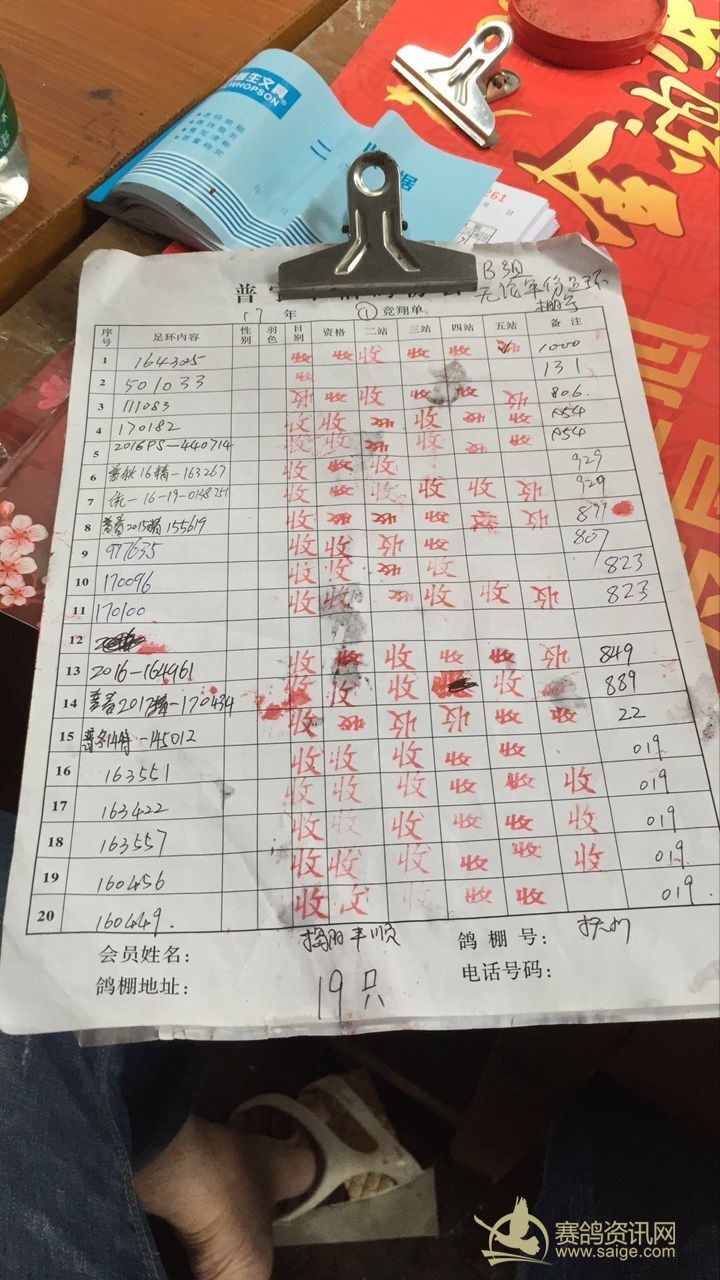 生文具
WHOPSON
二
据
261
B组
普
17 年 ① 竞翔单
序号 足环内容 性别 羽色 日别 资格 二站 三站 四站 五站 备注
1 164325 收 收 收 收 收 收 1000
2 501033 收 131
3 111083 收 收 收 收 收 收 806
4 170182 收 收 收 收 收 收 854
5 2016PS-440714 收 收 收 收 收 收 854
6 普秋16精-163267 收 收 收 929
7 -16-19-0138251 收 收 收 收 收 收 929
8 普春2015 155619 收 收 收 收 收 收 897
9 977635 收 收 收 收 807
10 170096 收 收 收 收 823
11 170100 收 收 收 收 收 收 823
12
13 2016-164961 收 收 收 收 收 收 849
14 普春2017精-170434 收 收 收 收 889
15 普冬14特-145012 收 收 收 收 收 收 22
16 163551 收 收 收 收 收 019
17 163422 收 收 收 收 收 收 019
18 163557 收 收 收 收 收 收 019
19 160456 收 收 收 收 收 收 019
20 160449. 收 收 收 收 收 019.
会员姓名: 鸽棚号:
鸽棚地址: 19只 电话号码:
赛鸽资讯网
www.saige.com